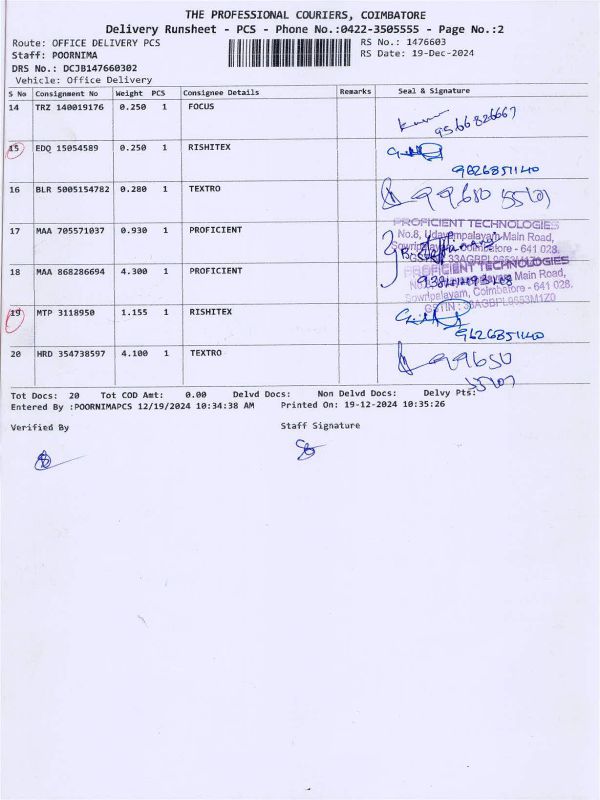 THE PROFESSIONAL COURIERS, COIMBATORE
Delivery Runsheet - PCS - Phone No.:0422-3505555 - Page No.:2
Route: OFFICE DELIVERY PCS RS No.: 1476603
Staff: POORNIMA RS Date: 19-Dec-2024
DRS No.: DCJB147660302
Vehicle: Office Delivery
S No Consignment No Weight PCS Consignee Details Remarks Seal & Signature
14 TRZ 140019176 0.250 1 FOCUS
9566826667
15 EDQ 15054589 0.250 1 RISHITEX
9626851140
16 BLR 5005154782 0.280 1 TEXTRO
99650 55101
17 MAA 705571037 0.930 1 PROFICIENT
PROFICIENT TECHNOLOGIES
No.8, Udayampalayam Main Road,
Sowripalayam, Coimbatore - 641 028.
18 MAA 868286694 4.300 1 PROFICIENT
PROFICIENT TECHNOLOGIES
Main Road,
Sowripalayam, Coimbatore - 641 028.
19 MTP 3118950 1.155 1 RISHITEX
9626851140
20 HRD 354738597 4.100 1 TEXTRO
99650
55101
Tot Docs: 20 Tot COD Amt: 0.00 Delvd Docs: Non Delvd Docs: Delvy Pts:
Entered By :POORNIMAPCS 12/19/2024 10:34:38 AM Printed On: 19-12-2024 10:35:26
Verified By Staff Signature